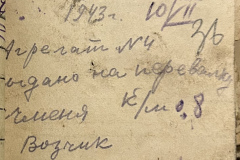 1943г. 10/II
36
Агрегат №4
ыдано на перевалку
чменя к/м 8
Возчик